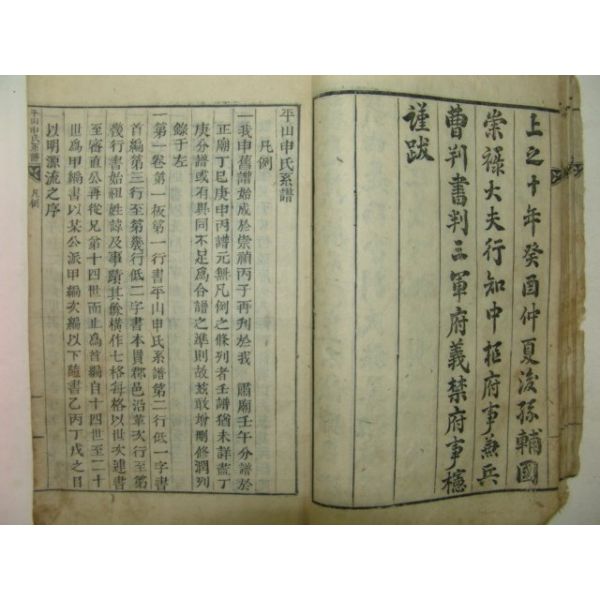 上之十年癸酉仲夏後孫輔國
崇祿大夫行知中樞府事兼兵
曹判書判三軍府義禁府事櫶
謹跋
平山申氏系譜
凡例
一我申舊譜始成於崇禎丙子再刊於我 肅廟壬午分譜於
正廟丁巳庚申丙譜元無凡例之條列者壬譜猶未詳蓋丁
庚分譜或有異同不足爲合譜之準則故玆敢增刪修潤列
錄于左
一第一卷第一板第一行書平山申氏系譜第二行低一字書
首編第三行至第幾行低二字書本貫郡邑沿革次行至第
幾行書始祖姓諱及事蹟其餘橫作七格每格以世次連書
至審直公再從兄弟十四世而止爲首編自十四世至二十
世爲甲編書以某公派甲編次編以下隨書乙丙丁戊之目
以明源流之序
平山申氏系譜
凡例